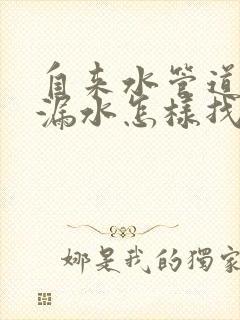 自来水管道
漏水怎样找
娜是我的獨家